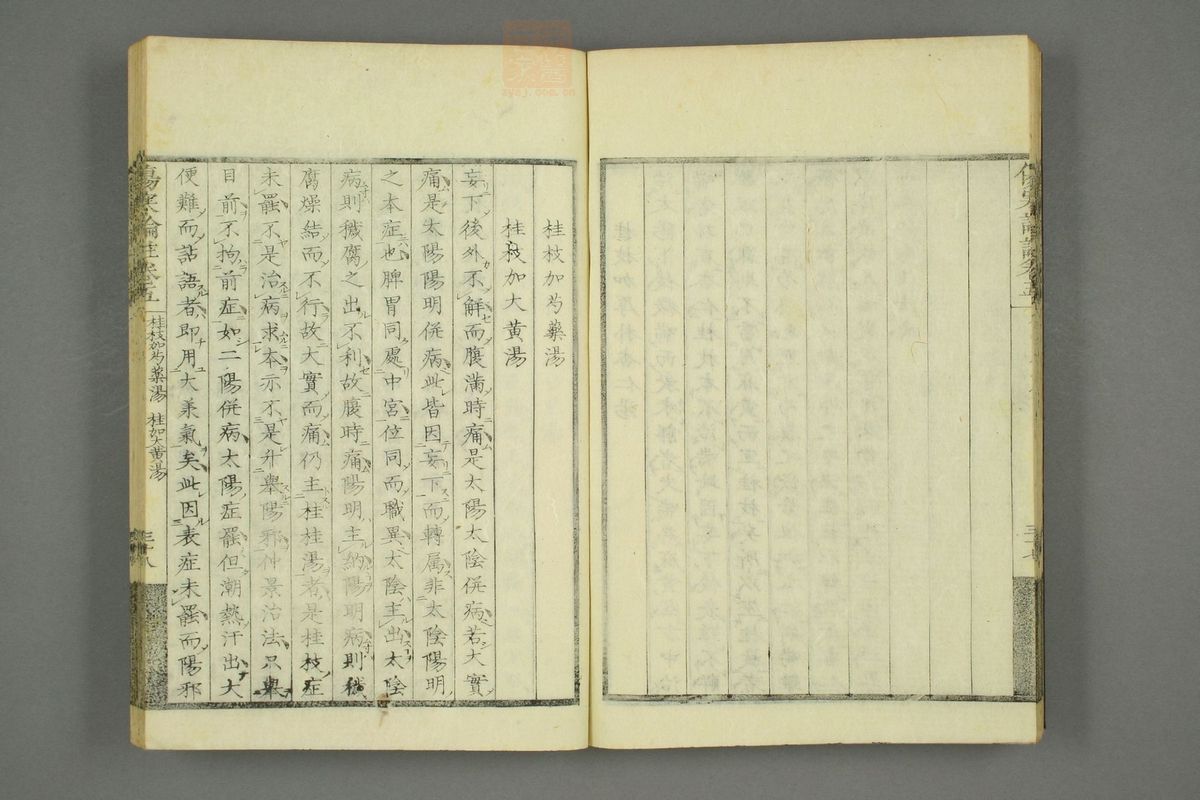 桂枝加芍藥湯
桂枝加大黃湯
妄下後外不解而腹滿時痛是太陽太陰併病若大實
痛是太陽陽明併病此皆因妄下而轉属非太陰陽明
之本症也脾胃同處中宮位同而職異太陰主出太陰
病則穢腐之出不利故腹時痛陽明主納陽明病則穢
腐燥結而不行故大實而痛仍主桂枝湯者是桂枝症
未罷不是治病求本亦不是升舉陽邪仲景治法只舉
目前不拘前症如二陽併病太陽症罷但潮熱汗出大
便難而譫語者即用大承氣矣此因表症未罷而陽邪
傷寒論註卷五
桂枝加芍藥湯 桂加大黃湯
三十八
傷寒論註卷五
三十七
zysj.com.cn